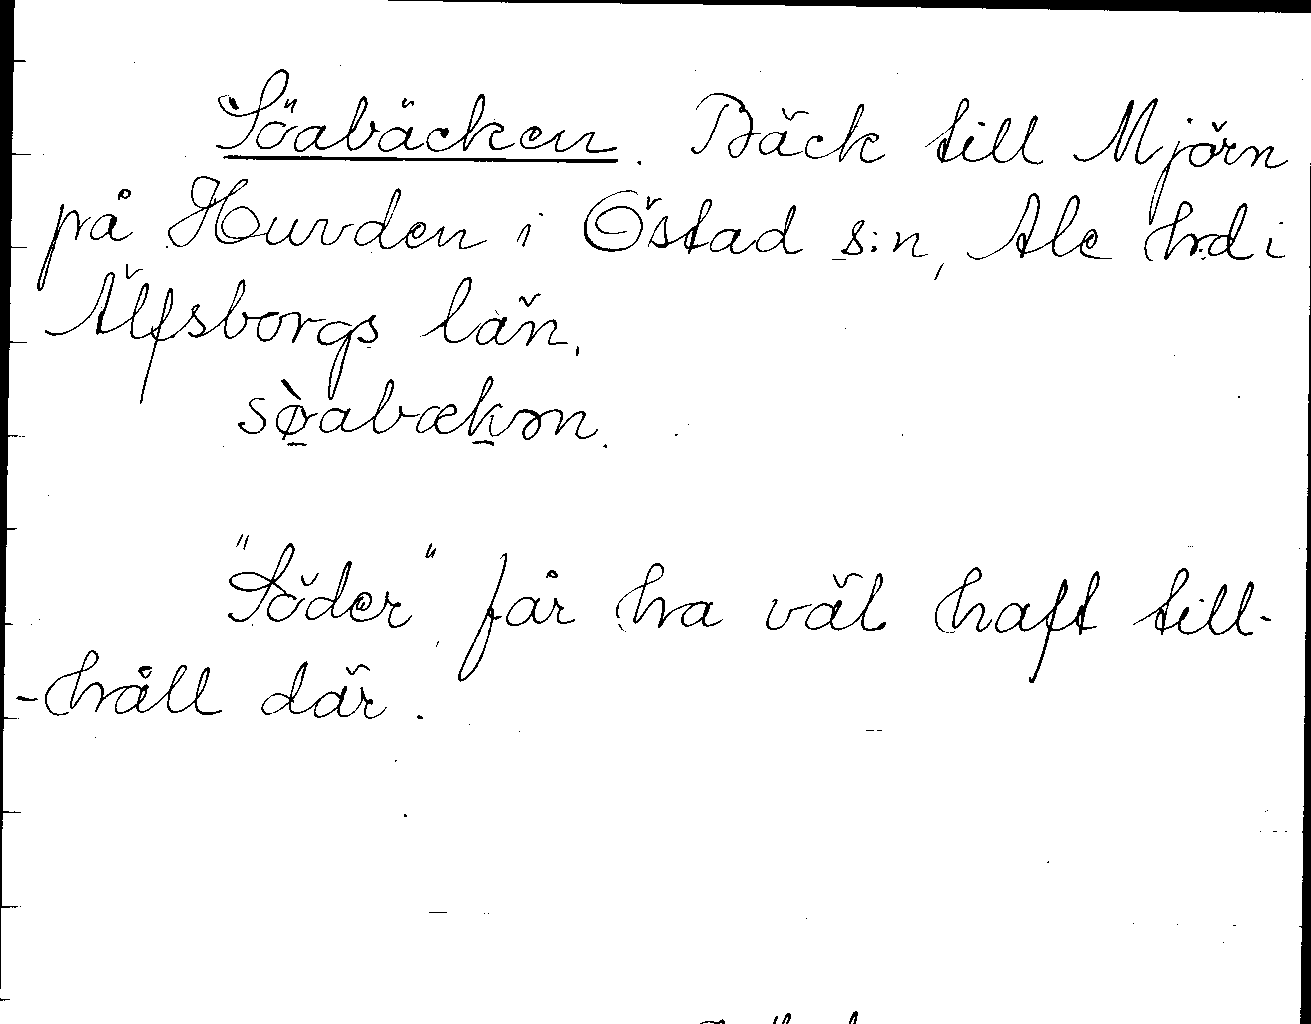 Söabäcken. Bäck till Mjörn
på Huvden i Östad s:n, Ale hrd i
Älfsborgs län.
sø̀abækən.
"Söder" får hra väl haft till-
-håll där.